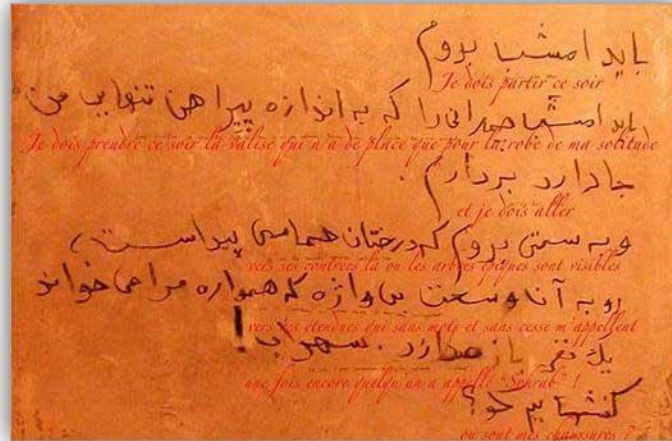 باید امشب بروم
Je dois partir ce soir
باید امشب چمدانی را که به اندازه پیراهن تنهایی من
Je dois prendre ce soir la valise qui n'a de place que pour la robe de ma solitude
جا دارد بردارم .
et je dois aller
و به سمتی بروم که درختان حماسی پیداست ،
vers ses contrées là ou les arbres épiques sont visibles
رو به آن وسعت بی واژه که همواره مرا می خواند
vers des étendues qui sans mots et sans cesse m'appellent
یک نفر باز صدا زد . سهراب !
une fois encore quelqu'un a appellé "Sohrab" !
کفشهایم کو ؟
ou sont mes chaussures ?